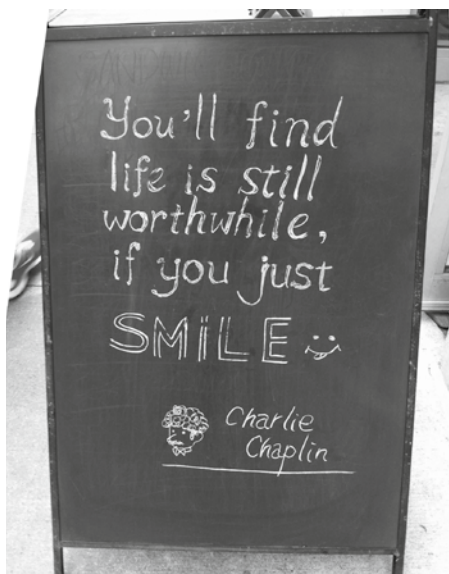 You'll find
life is still
worthwhile,
if you just
SMiLE
Charlie
Chaplin